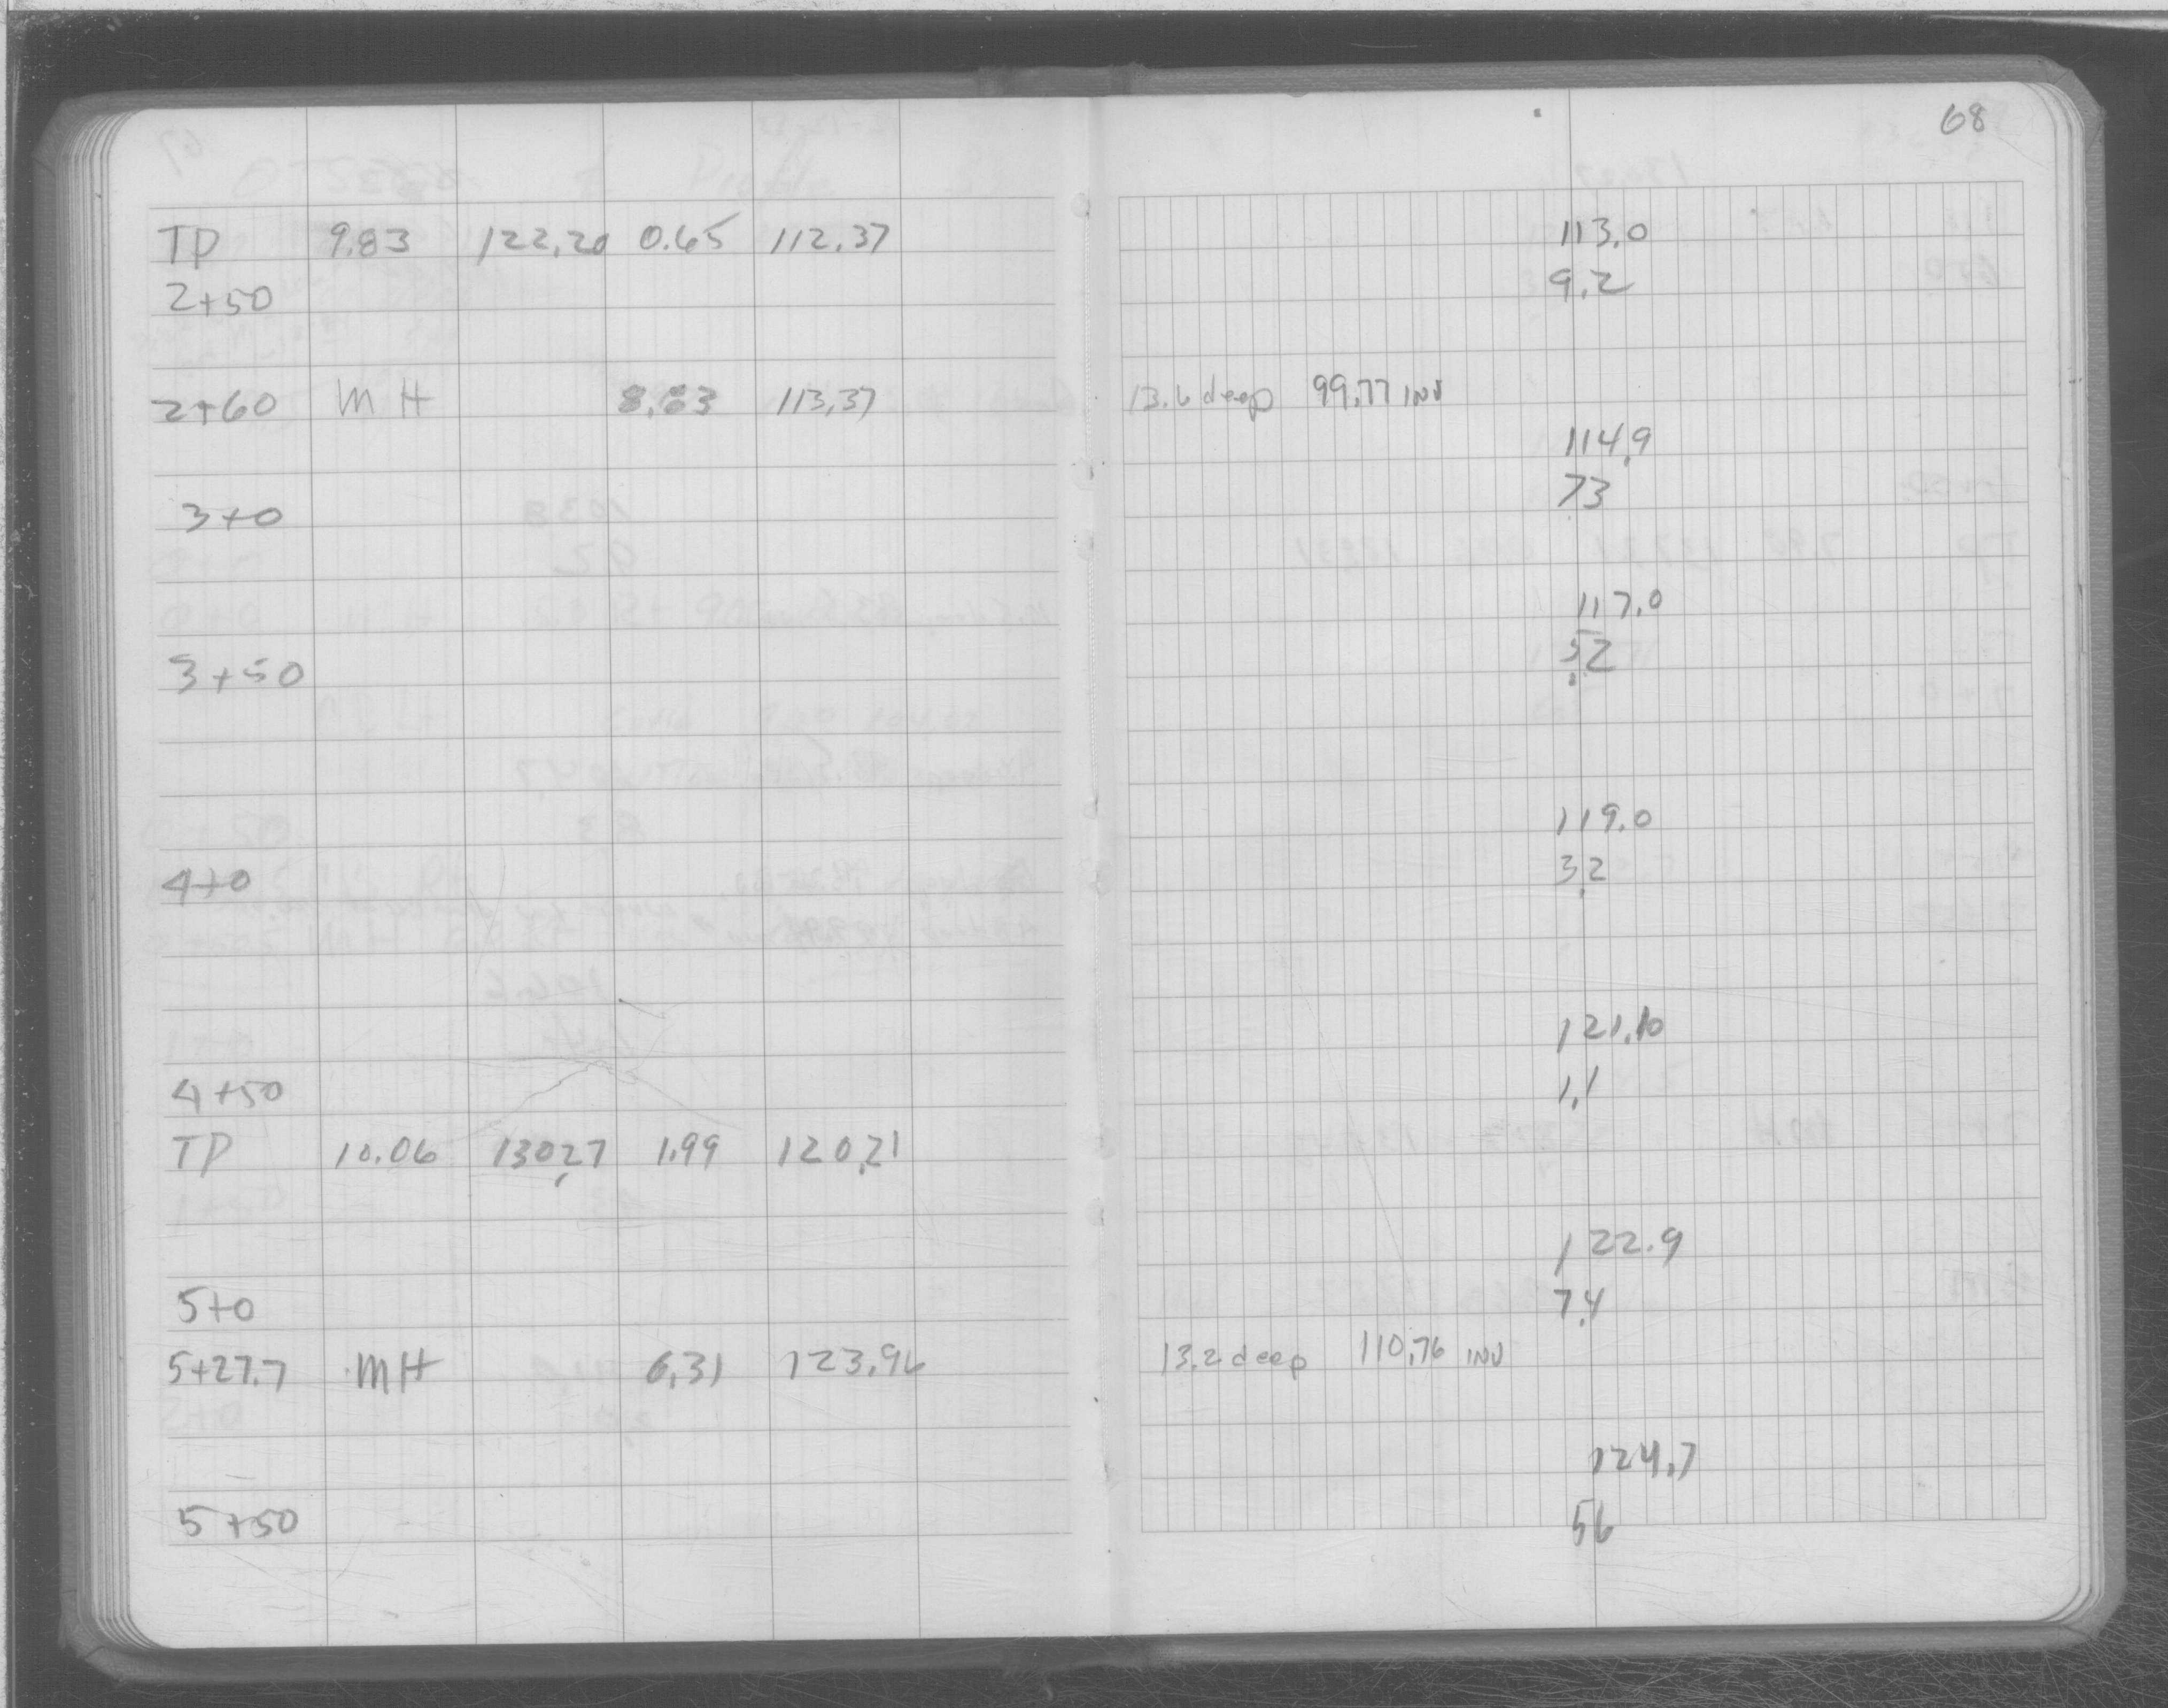 68
TP 9.83 122.20 0.65 112.37 113.0
2+50 9.2
2+60 MH 8.83 113.37 13.6 deep 99.77 INV
114.9
3+0 7.3
117.0
3+50 5.2
119.0
4+0 3.2
121.10
4+50 1.1
TP 10.06 130.27 1.99 120.21
122.9
5+0 7.4
5+27.7 MH 6.31 123.96 13.2 deep 110.76 INV
124.7
5+50 56